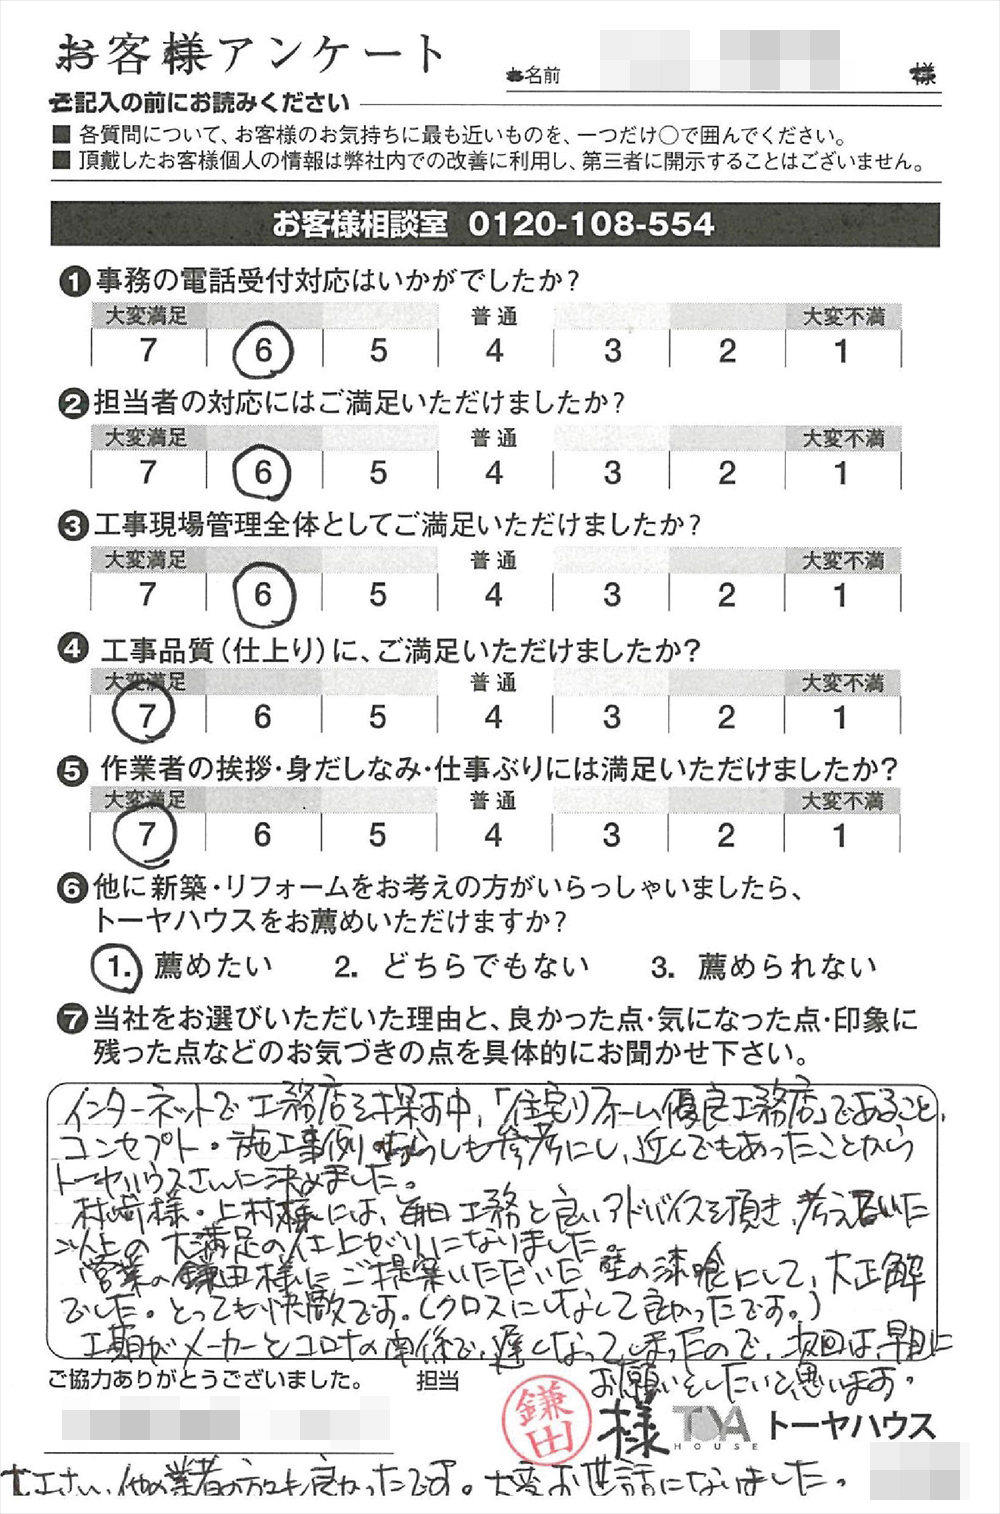 お客様アンケート
お名前 様
ご記入の前にお読みください
■ 各質問について、お客様のお気持ちに最も近いものを、一つだけ○で囲んでください。
■ 頂戴したお客様個人の情報は弊社内での改善に利用し、第三者に開示することはございません。
お客様相談室 0120-108-554
❶事務の電話受付対応はいかがでしたか?
大変満足 普通 大変不満
7 6 5 4 3 2 1
❷担当者の対応にはご満足いただけましたか?
大変満足 普通 大変不満
7 6 5 4 3 2 1
❸工事現場管理全体としてご満足いただけましたか?
大変満足 普通 大変不満
7 6 5 4 3 2 1
❹工事品質(仕上り)に、ご満足いただけましたか?
大変満足 普通 大変不満
7 6 5 4 3 2 1
❺作業者の挨拶・身だしなみ・仕事ぶりには満足いただけましたか?
大変満足 普通 大変不満
7 6 5 4 3 2 1
❻他に新築・リフォームをお考えの方がいらっしゃいましたら、
トーヤハウスをお薦めいただけますか?
1. 薦めたい 2. どちらでもない 3. 薦められない
❼当社をお選びいただいた理由と、良かった点・気になった点・印象に
残った点などのお気づきの点を具体的にお聞かせ下さい。
インターネットで工務店を探す中、「住宅リフォーム優良工務店」であること、
コンセプト・施工事例 しも参考にし、近くでもあったことから
トーヤハウスさんに決めました。
村崎様・上村様には、毎日 工務と良いアドバイスを頂き、考えていた
以上の大満足の仕上がりになりました。
営業の鎌田様にご提案いただいた 壁の漆喰にして、大正解
でした。とっても快適です。(クロスにしなくて良かったです。)
工期がメーカーとコロナの関係で、遅くなってしまったので、次回は早目に
お願いをしたいと思います。
ご協力ありがとうございました。 担当 鎌田 様 TOYA HOUSE トーヤハウス
大工さん、他の業者の方々も良かったです。大変お世話になりました。